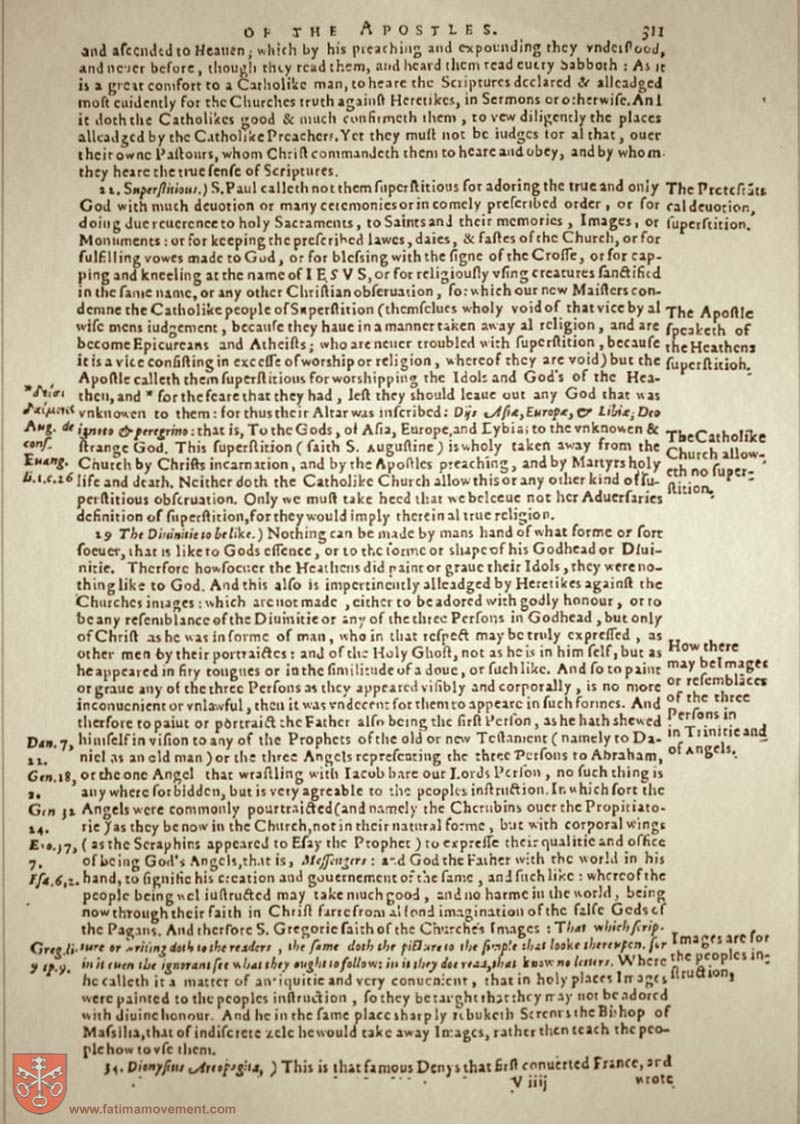 OF THE APOSTLES. 311
and ascended to Heauen; which by his preaching and expounding they vnderstood,
and neuer before, though they read them, and heard them read euery Sabboth: As it
is a great comfort to a Catholike man, to heare the Scriptures declared & alleadged
most euidently for the Churches truth against Heretikes, in Sermons or otherwise. And
it doth the Catholikes good & much confirmeth them, to vew diligently the places
alleadged by the Catholike Preachers. Yet they must not be iudges for al that, ouer
their owne Pastours, whom Christ commandeth them to heare and obey, and by whom
they heare the true sense of Scriptures.
22. Superstitious.) S. Paul calleth not them superstitious for adoring the true and only
God with much deuotion or many ceremonies or in comely prescribed order, or for
doing due reuerence to holy Sacraments, to Saints and their memories, Images, or
Monuments: or for keeping the prescribed lawes, daies, & fastes of the Church, or for
fulfilling vowes made to God, or for blessing with the signe of the Crosse, or for cap-
ping and kneeling at the name of IESVS, or for religiously vsing creatures sanctified
in the same name, or any other Christian obseruation, for which our new Maisters con-
demne the Catholike people of Superstition (themselues wholy void of that vice by al
wise mens iudgement, because they haue in a manner taken away al religion, and are
become Epicureans and Atheists; who are neuer troubled with superstition, because
it is a vice consisting in excesse of worship or religion, whereof they are void) but the
Apostle calleth them superstitious for worshipping the Idols and God's of the Hea-
then, and * for the feare that they had, lest they should leaue out any God that was
vnknowen to them: for thus their Altar was inscribed: Dijs Asiæ, Europæ, & Libiæ, Deo
ignoto & peregrino: that is, To the Gods, of Asia, Europe, and Lybia; to the vnknowen &
strange God. This superstition (saith S. Augustine) is wholy taken away from the
Church by Christs incarnation, and by the Apostles preaching, and by Martyrs holy
life and death. Neither doth the Catholike Church allow this or any other kind of su-
perstitious obseruation. Only we must take heed that we beleeue not her Aduersaries
definition of superstition, for they would imply therein al true religion.
29 The Diuinitie to be like.) Nothing can be made by mans hand of what forme or sort
soeuer, that is like to Gods essence, or to the forme or shape of his Godhead or Diui-
nitie. Therfore howsoeuer the Heathens did paint or graue their Idols, they were no-
thing like to God. And this also is impertinently alleadged by Heretikes against the
Churches images: which are not made, either to be adored with godly honour, or to
be any resemblance of the Diuinitie or any of the three Persons in Godhead, but only
of Christ as he was in forme of man, who in that respect may be truly expressed, as
other men by their portraictes: and of the Holy Ghost, not as he is in him self, but as
he appeared in firy tongues or in the similitude of a doue, or such like. And so to paint
or graue any of the three Persons as they appeared visibly and corporally, is no more
inconuenient or vnlawful, then it was vndecent for them to appeare in such formes. And
therfore to paint or portraict the Father also being the first Person, as he hath shewed
himself in vision to any of the Prophets of the old or new Testament (namely to Da-
niel as an old man) or the three Angels representing the three Persons to Abraham,
or the one Angel that wrastling with Iacob bare our Lords Person, no such thing is
any where forbidden, but is very agreable to the peoples instruction. In which sort the
Angels were commonly pourtraicted (and namely the Cherubins ouer the Propitiato-
rie) as they be now in the Church, not in their natural forme, but with corporal wings
(as the Seraphins appeared to Esay the Prophet) to expresse their qualitie and office
of being God's Angels, that is, Messengers: and God the Father with the world in his
hand, to signifie his creation and gouernement of the same, and such like: whereof the
people being wel instructed may take much good, and no harme in the world, being
now through their faith in Christ farre from al fond imagination of the false Gods of
the Pagans. And therfore S. Gregorie saith of the Churche's Images: That which scrip-
ture or writing doth to the readers, the same doth the picture to the simple that looke therevpon. for
in it euen the ignorant see what they ought to follow: in it they doe read, that know no letters. Where
he calleth it a matter of antiquitie and very conuenient, that in holy places Images
were painted to the peoples instruction, so they be taught that they may not be adored
with diuine honour. And he in the same place sharply rebuketh Serenus the Bishop of
Massilia, that of indiscrete zele he would take away Images, rather then teach the peo-
ple how to vse them.
34. Dionysius Areopagita,) This is that famous Denys that first conuerted France, and
V iiij wrote
The Protestāts
cal deuotion,
superstition.
The Apostle
speaketh of
the Heathens
superstitioh.
The Catholike
Church allow-
eth no super-
stition.
How there
may be Images
or resemblāces
of the three
Persons in
in Trinitie and
of Angels.
Images are for
the peoples in-
struction,
Aug. de
cons.
Euang.
li.1.c.26
Dan. 7,
22.
Gen. 18,
2.
Gen 32
24.
Exo. 37,
7.
Esa. 6, 2.
Greg. li.
9 ep. 9.
www.fatimamovement.com